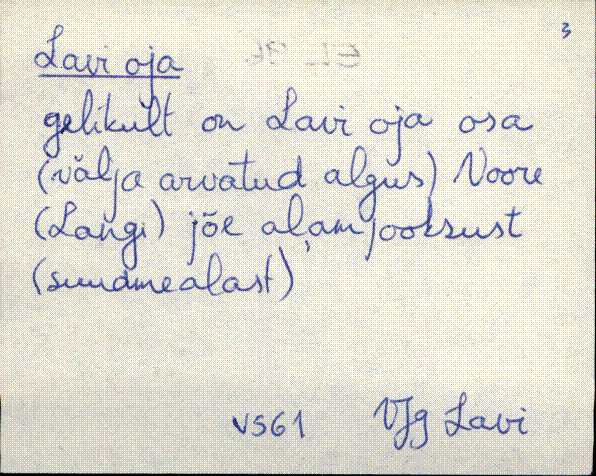 3
Lavi oja
gelikult on Lavi oja osa
(välja arvatud algus) Voore
(Langi) jõe alamjooksust
(suudmealast)
VS61 VJg Lavi